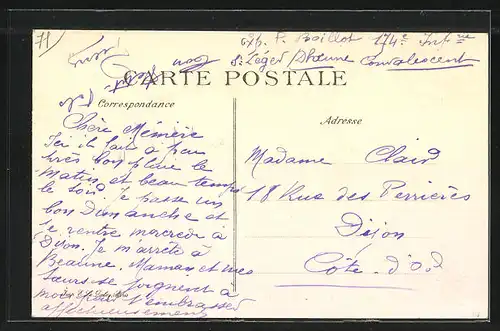 71
exp. P. Baillot 174e Infrie
St Léger s/Dheune Convalescent
CARTE POSTALE
Correspondance
Adresse
Chère Mémère
Ici il fait à peu
très bon pleut le
matin et beau temps
le soir. Je passe un
bon Dimanche et
je rentre mercredi à
Dijon. Je m'arrête à
Beaune. Maman et mes
sœurs se joignent à
moi pour t'embrasser
affectueusement
Madame Clair
18 Rue des Perrières
Dijon
Côte-d'Or